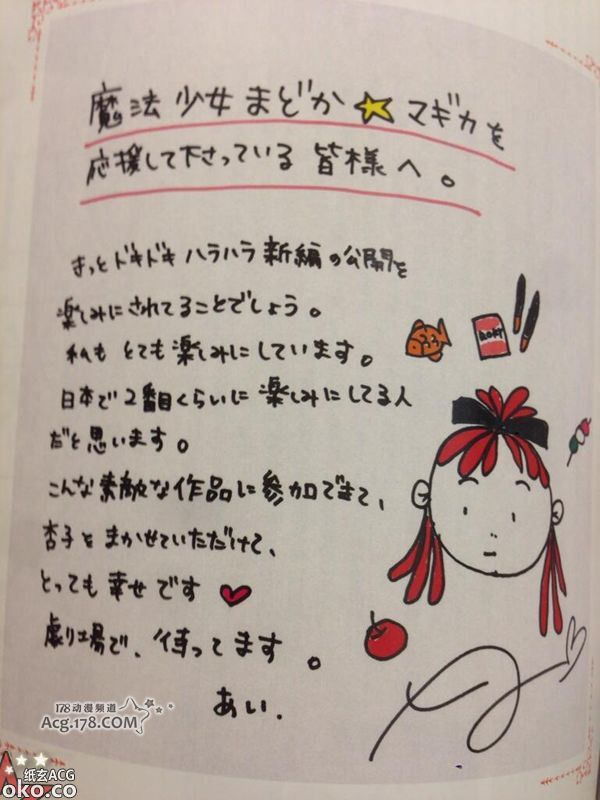 魔法少女まどか★マギカを
応援して下さっている皆様へ。
きっとドキドキハラハラ新編の公開を
楽しみにされてることでしょう。
私もとても楽しみにしています。
日本で2番目くらいに楽しみにしてる人
だと思います。
こんな素敵な作品に参加できて、
杏子をまかせていただけて、
とっても幸せです♥
劇場で、待ってます。
あい.
ROKY
178动漫频道
Acg.178.COM
纸玄ACG
oko.co